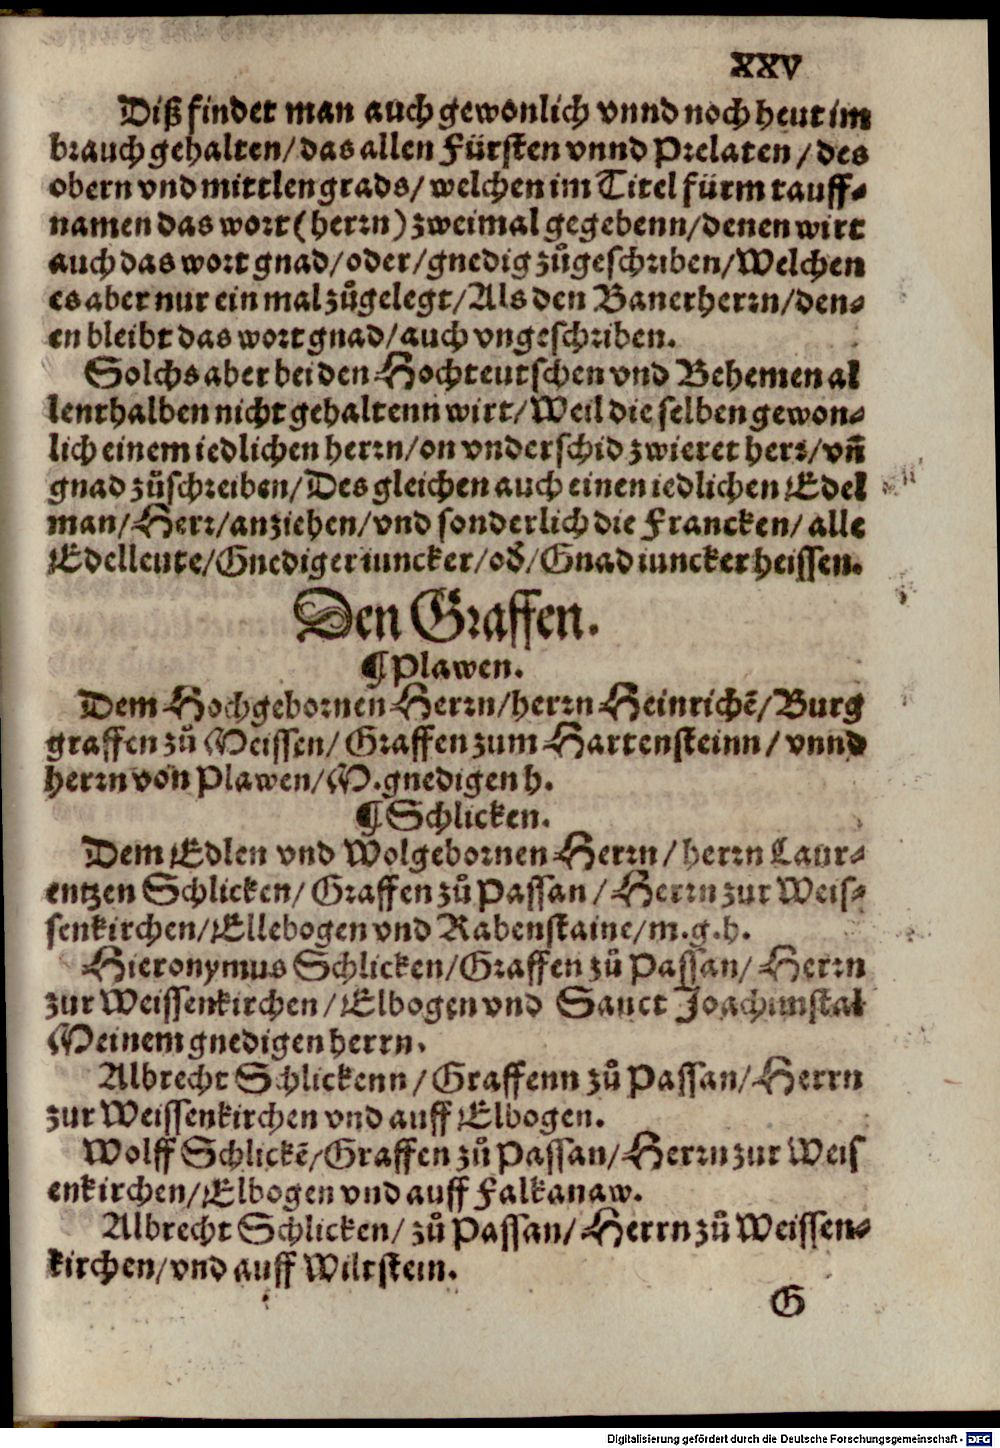 XXV
Diß findet man auch gewonlich vnnd noch heut im
brauch gehalten/das allen Fürsten vnnd Prelaten/des
obern vnd mittlen grads/welchen im Titel fürm tauff-
namen das wort (herrn) zweimal gegebenn/denen wirt
auch das wort gnad/oder/gnedig zůgeschriben/Welchen
es aber nur ein mal zůgelegt/Als den Banerherrn/den-
en bleibt das wort gnad/auch vngeschriben.
Solchs aber bei den Hochteutschen vnd Behemen al
lenthalben nicht gehaltenn wirt/Weil die selben gewon-
lich einem iedlichen herrn/on vnderschid zwieret herr/vñ
gnad zůschreiben/Des gleichen auch einen iedlichen Edel
man/Herr/anziehen/vnd sonderlich die Francken/alle
Edelleute/Gnediger iuncker/oď/Gnad iuncker heissen.
Den Graffen.
¶ Plawen.
Dem Hochgebornen Herrn/herrn Heinrichē/Burg
graffen zů Meissen/Graffen zum Hartensteinn/vnnd
herrn von Plawen/M.gnedigen h.
¶ Schlicken.
Dem Edlen vnd Wolgebornen Herrn/herrn Laur-
entzen Schlicken/Graffen zů Passan/Herrn zur Weis-
senkirchen/Ellebogen vnd Rabenstaine/m.g.h.
Hieronymus Schlicken/Graffen zů Passan/Herrn
zur Weissenkirchen/Elbogen vnd Sanct Joachimstal
Meinem gnedigen herrn.
Albrecht Schlickenn/Graffenn zů Passan/Herrn
zur Weissenkirchen vnd auff Elbogen.
Wolff Schlickē/Graffen zů Passan/Herrn zur Weis
enkirchen/Elbogen vnd auff Falkanaw.
Albrecht Schlicken/zů Passan/Herrn zů Weissen-
kirchen/vnd auff Wiltstein.
G
Digitalisierung gefördert durch die Deutsche Forschungsgemeinschaft - DFG